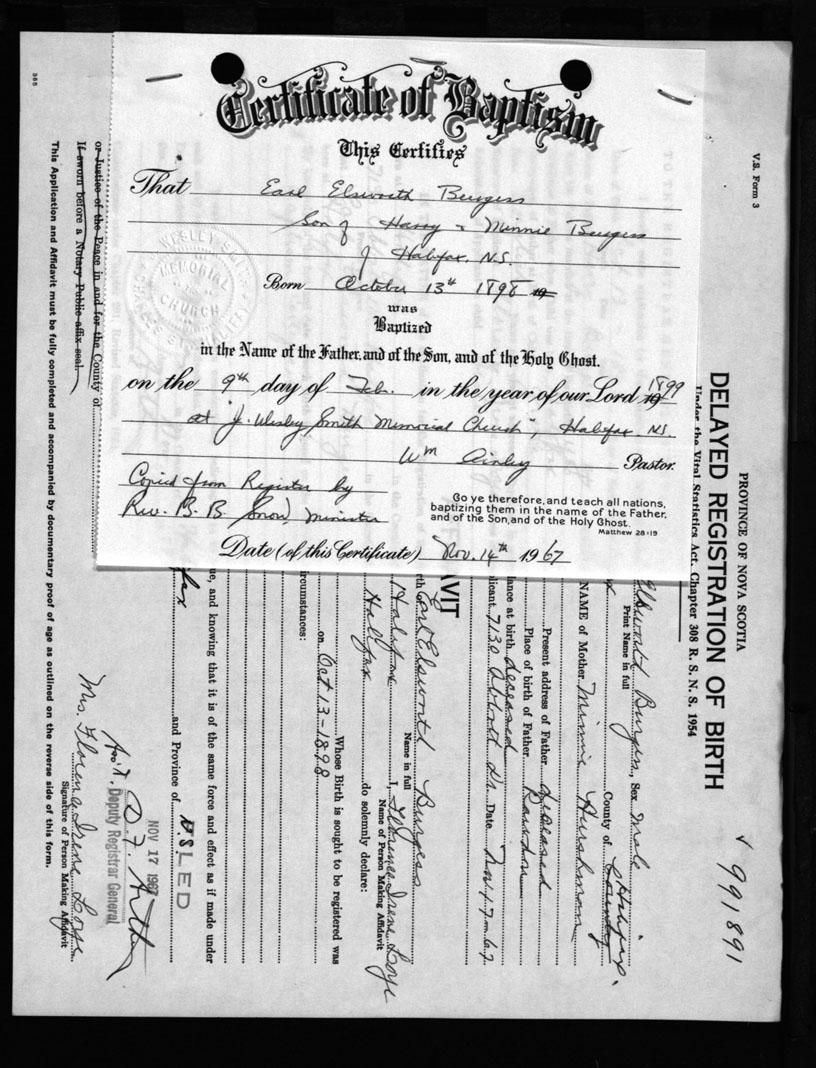 Certificate of Baptism
This Certifies
That Earl Elsworth Burgess
Son of Harry & Minnie Burgess
of Halifax, N.S.
Born October 13th 1898 19
was
Baptized
in the Name of the Father, and of the Son, and of the Holy Ghost.
on the 9th day of Feb. in the year of our Lord 19 1899
at "J. Wesley Smith Memorial Church", Halifax N.S.
Wm Ainley Pastor.
Copied from Register by
Rev. B. B. Snow, minister
Go ye therefore, and teach all nations,
baptizing them in the name of the Father,
and of the Son, and of the Holy Ghost.
Matthew 28:19
Date (of this Certificate) Nov. 14th 1967
WESLEY SMITH
MEMORIAL
CHURCH
V.S. Form 3
PROVINCE OF NOVA SCOTIA
DELAYED REGISTRATION OF BIRTH
Under the Vital Statistics Act, Chapter 308 R. S. N. S. 1954
991891
Ellsworth Burgess, Sex Male
Print Name in full
County of Halifax County
NAME of Mother Minnie Hushman
Present address of Father deceased
Place of birth of Father Rawdon
ance at birth deceased
licant 7130 Abbott Dr. Date Nov. 17-67
VIT
rth Earl Elsworth Burgess
Name in full
Halifax I, Florence Irene Loye
Name of Person Making Affidavit
Halifax do solemnly declare:
Whose Birth is sought to be registered was
on Oct 13-1898
rcumstances:
ue, and knowing that it is of the same force and effect as if made under
fax and Province of N.S.
LED
NOV 17 1967
Deputy Registrar General
Mrs. Florence Irene Loye
Signature of Person Making Affidavit
or Justice of the Peace in and for the County of
If sworn before a Notary Public affix seal.
This Application and Affidavit must be fully completed and accompanied by documentary proof of age as outlined on the reverse side of this form.